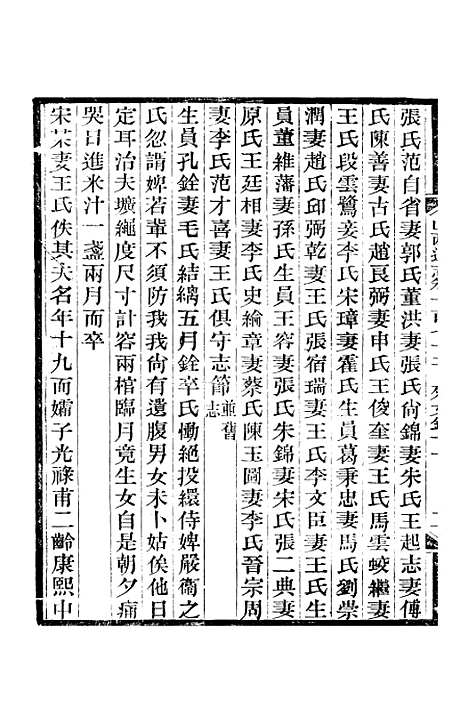 張氏范自省妻郭氏董洪妻張氏尚錦妻朱氏王起志妻傅
氏陳善妻古氏趙良弼妻申氏王俊奎妻王氏馬雲蛟繼妻
王氏段雲鷺妾李氏宋璋妻霍氏生員葛秉忠妻馬氏劉崇
潤妻趙氏邱弼乾妻王氏張宿瑞妻王氏李文臣妻王氏生
員董維藩妻孫氏生員王容妻張氏朱錦妻宋氏張二典妻
原氏王廷相妻李氏史綸章妻蔡氏陳玉圖妻李氏晉宗周
妻李氏范才喜妻王氏俱守志節並舊志
生員孔銓妻毛氏結縭五月銓卒氏慟絕投繯侍婢嚴衛之
氏忽謂婢若輩不須防我我尙有遺腹男女未卜姑俟他日
定耳治夫壙繩度尺寸計容兩棺臨月竟生女自是朝夕痛
哭日進米汁一盞兩月而卒
宋某妻王氏佚其夫名年十九而孀子光祿甫二齡康熙中